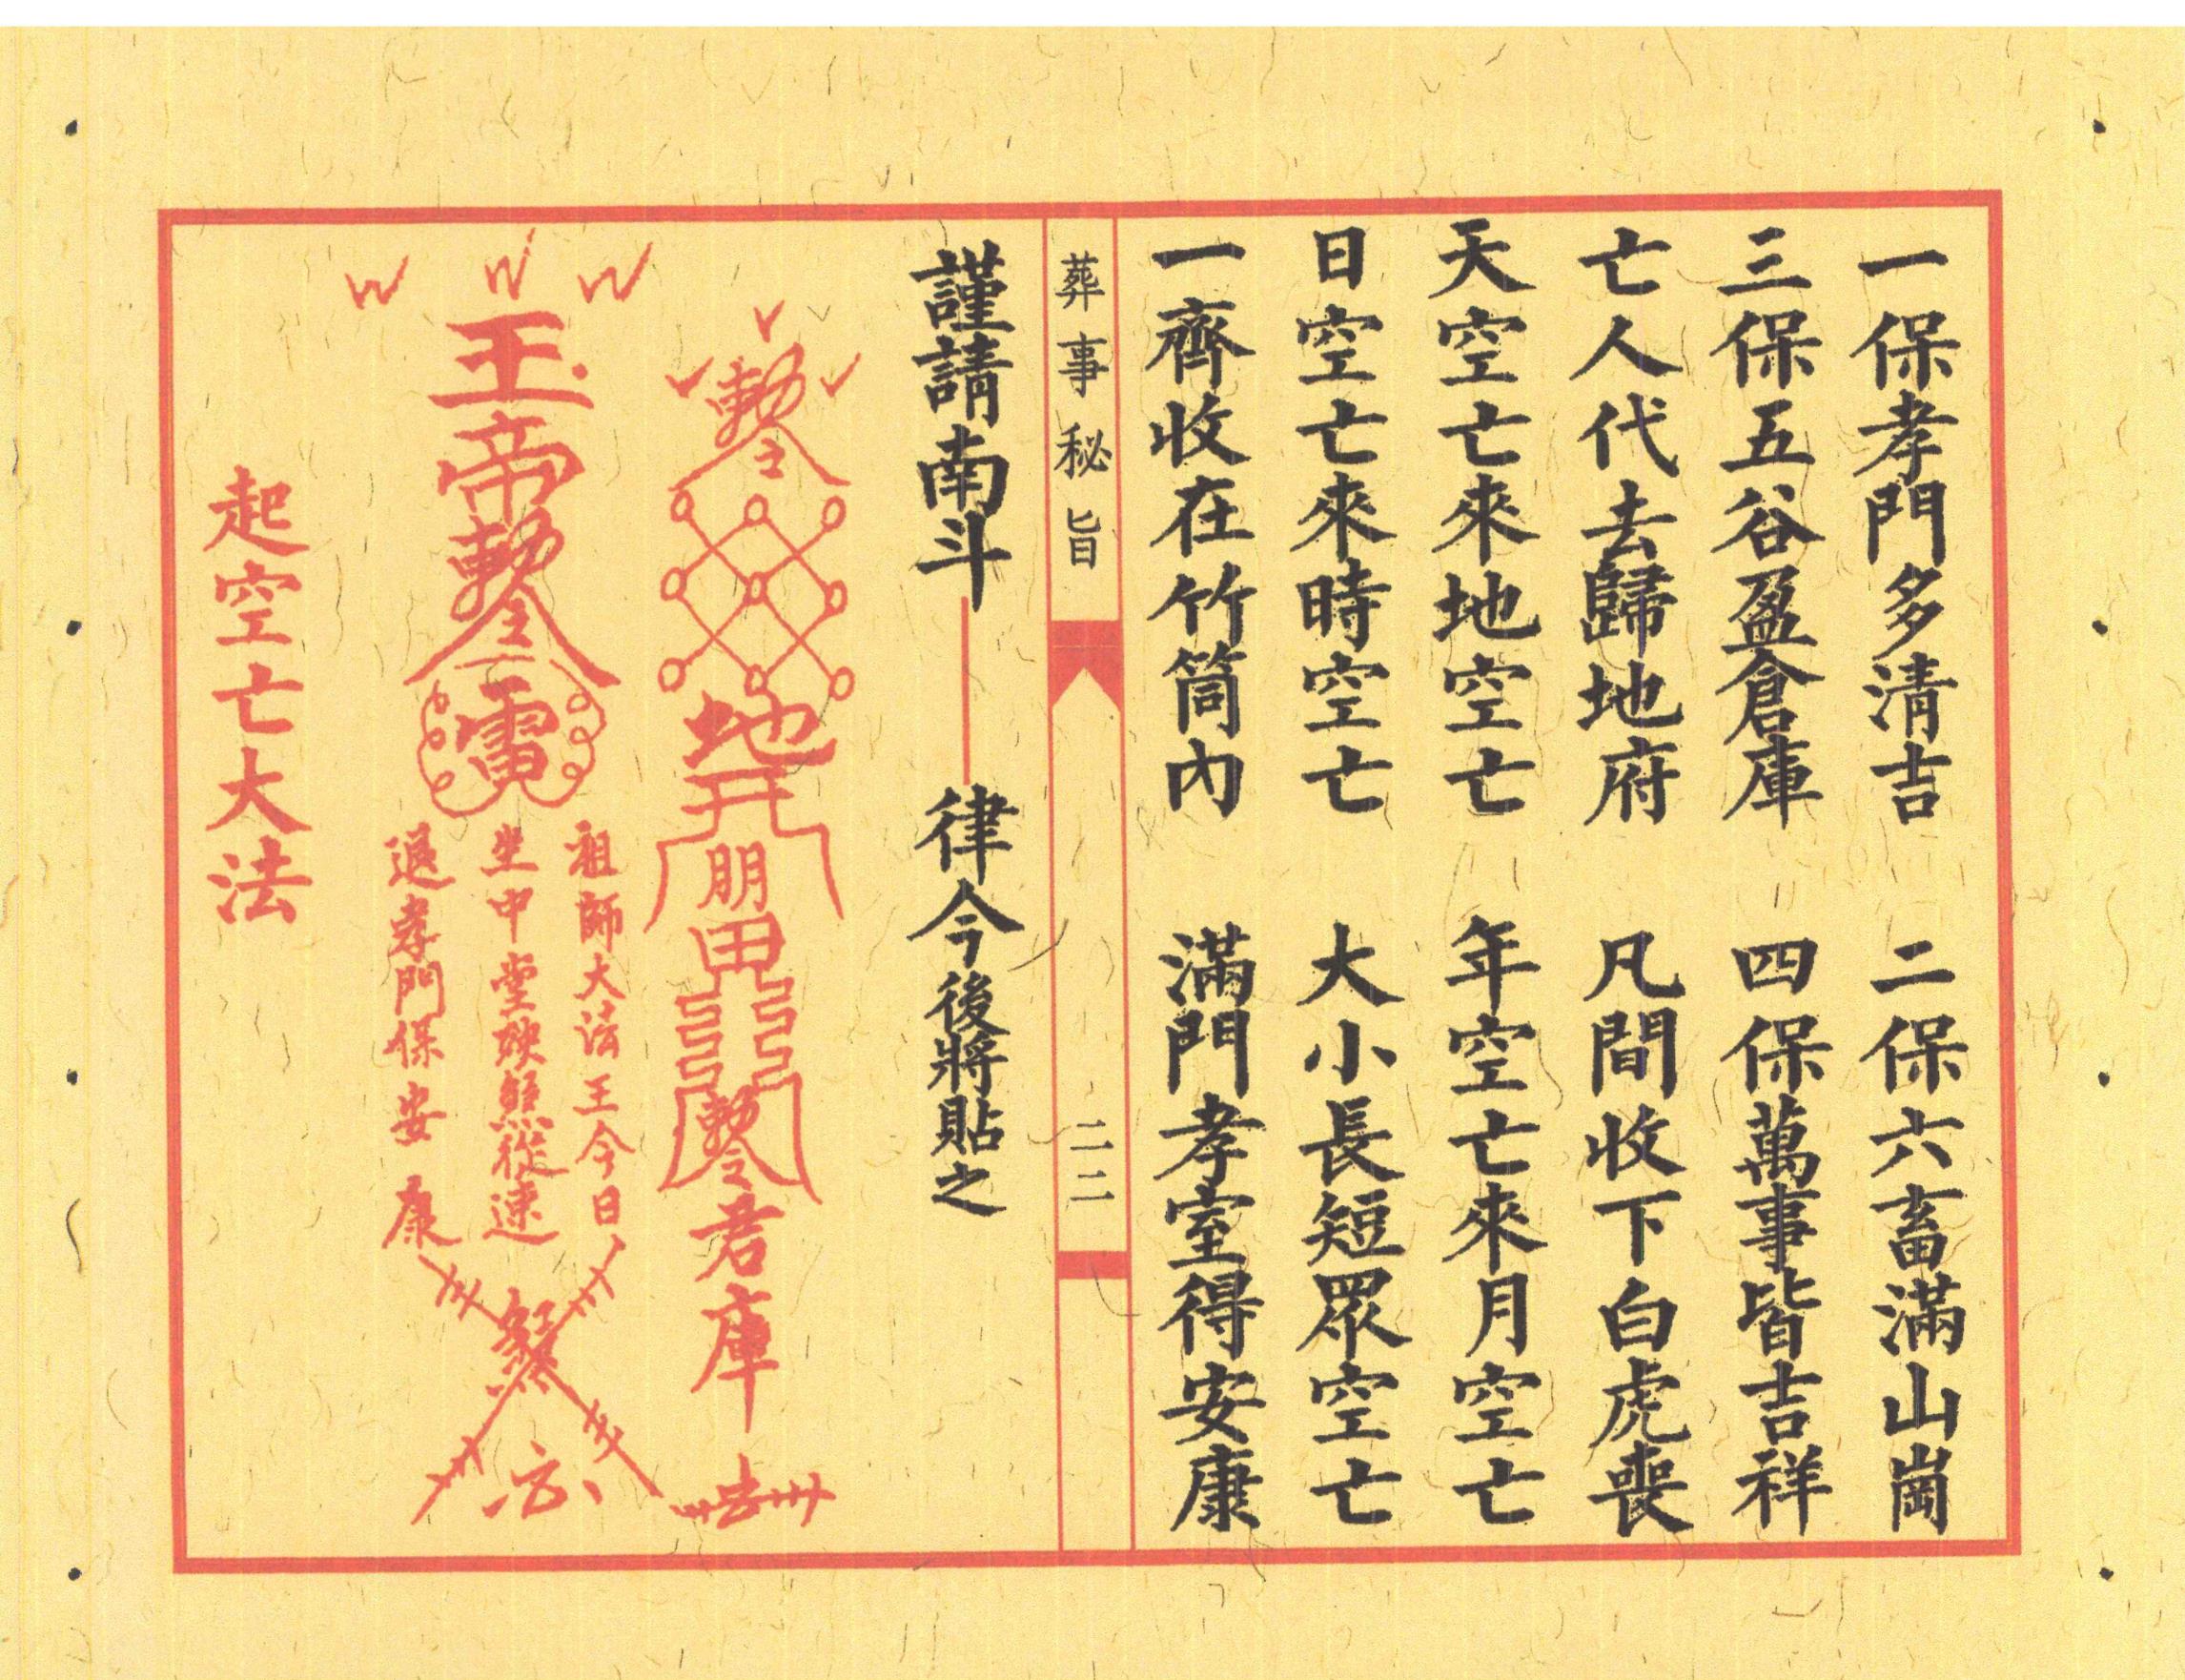 一保孝門多清吉　二保六畜滿山崗
三保五谷盈倉庫　四保萬事皆吉祥
亡人代去歸地府　凡間收下白虎喪
天空亡來地空亡　年空亡來月空亡
日空亡來時空亡　大小長短眾空亡
一齊收在竹筒內　滿門孝室得安康
葬事秘旨　二二
謹請南斗——律令後將貼之
勅令
地
朋
甲
勅令
君庫
去
玉帝勅令
雷
祖師大法王今日
坐中堂照從速
過孝門保安康
起空亡大法